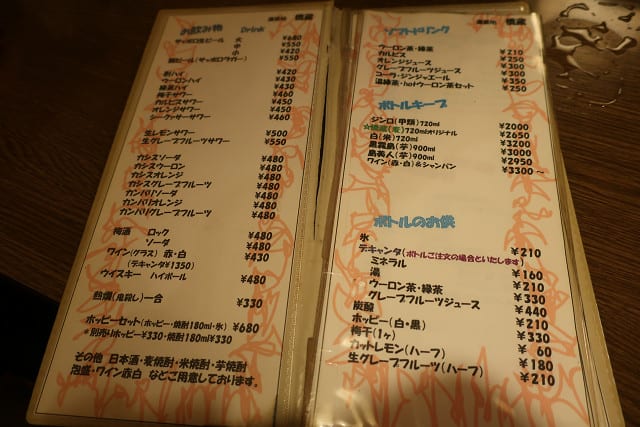 お飲み物 Drink
サッポロ生ビール 大 ¥680
中 ¥550
小 ¥420
瓶ビール(サッポロラガー) ¥550
酎ハイ ¥420
ウーロンハイ ¥430
緑茶ハイ ¥430
梅干サワー ¥460
カルピスサワー ¥450
オレンジサワー ¥450
シークァーサーサワー ¥460
生レモンサワー ¥500
生グレープフルーツサワー ¥550
カシスソーダ ¥480
カシスウーロン ¥480
カシスオレンジ ¥480
カシスグレープフルーツ ¥480
カンパリソーダ ¥480
カンパリオレンジ ¥480
カンパリグレープフルーツ ¥480
梅酒 ロック ¥480
ソーダ ¥480
ワイン(グラス) 赤・白 ¥430
(デキャンタ¥1350)
ウイスキー ハイボール ¥480
熱燗(鬼殺し)一合 ¥330
ホッピーセット(ホッピー・焼酎180ml・氷) ¥680
*別売りホッピー¥330・焼酎180ml¥330
その他 日本酒・麦焼酎・米焼酎・芋焼酎
泡盛・ワイン赤白 などご用意しております。
ソフトドリンク
ウーロン茶・緑茶 ¥210
カルピス ¥250
オレンジジュース ¥300
グレープフルーツジュース ¥300
コーラ・ジンジャエール ¥350
温緑茶・hotウーロン茶セット ¥250
ボトルキープ
ジンロ(甲類)720ml ¥2000
(麦)720mlオリジナル ¥2650
白(米)720ml ¥3200
黒霧島(芋)900ml ¥3000
島美人(芋)900ml ¥2950
ワイン(赤・白)&シャンパン ¥3300~
ボトルのお供
氷 ¥210
デキャンタ(ボトルご注文の場合といたします)
ミネラル ¥160
湯 ¥210
ウーロン茶・緑茶 ¥330
グレープフルーツジュース ¥440
炭酸 ¥210
ホッピー(白・黒) ¥330
梅干(1ヶ) ¥ 60
カットレモン(ハーフ) ¥180
生グレープフルーツ(ハーフ) ¥210